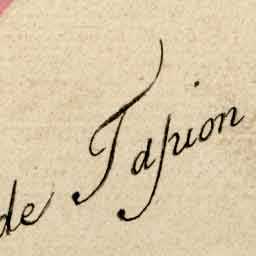 de Tapion